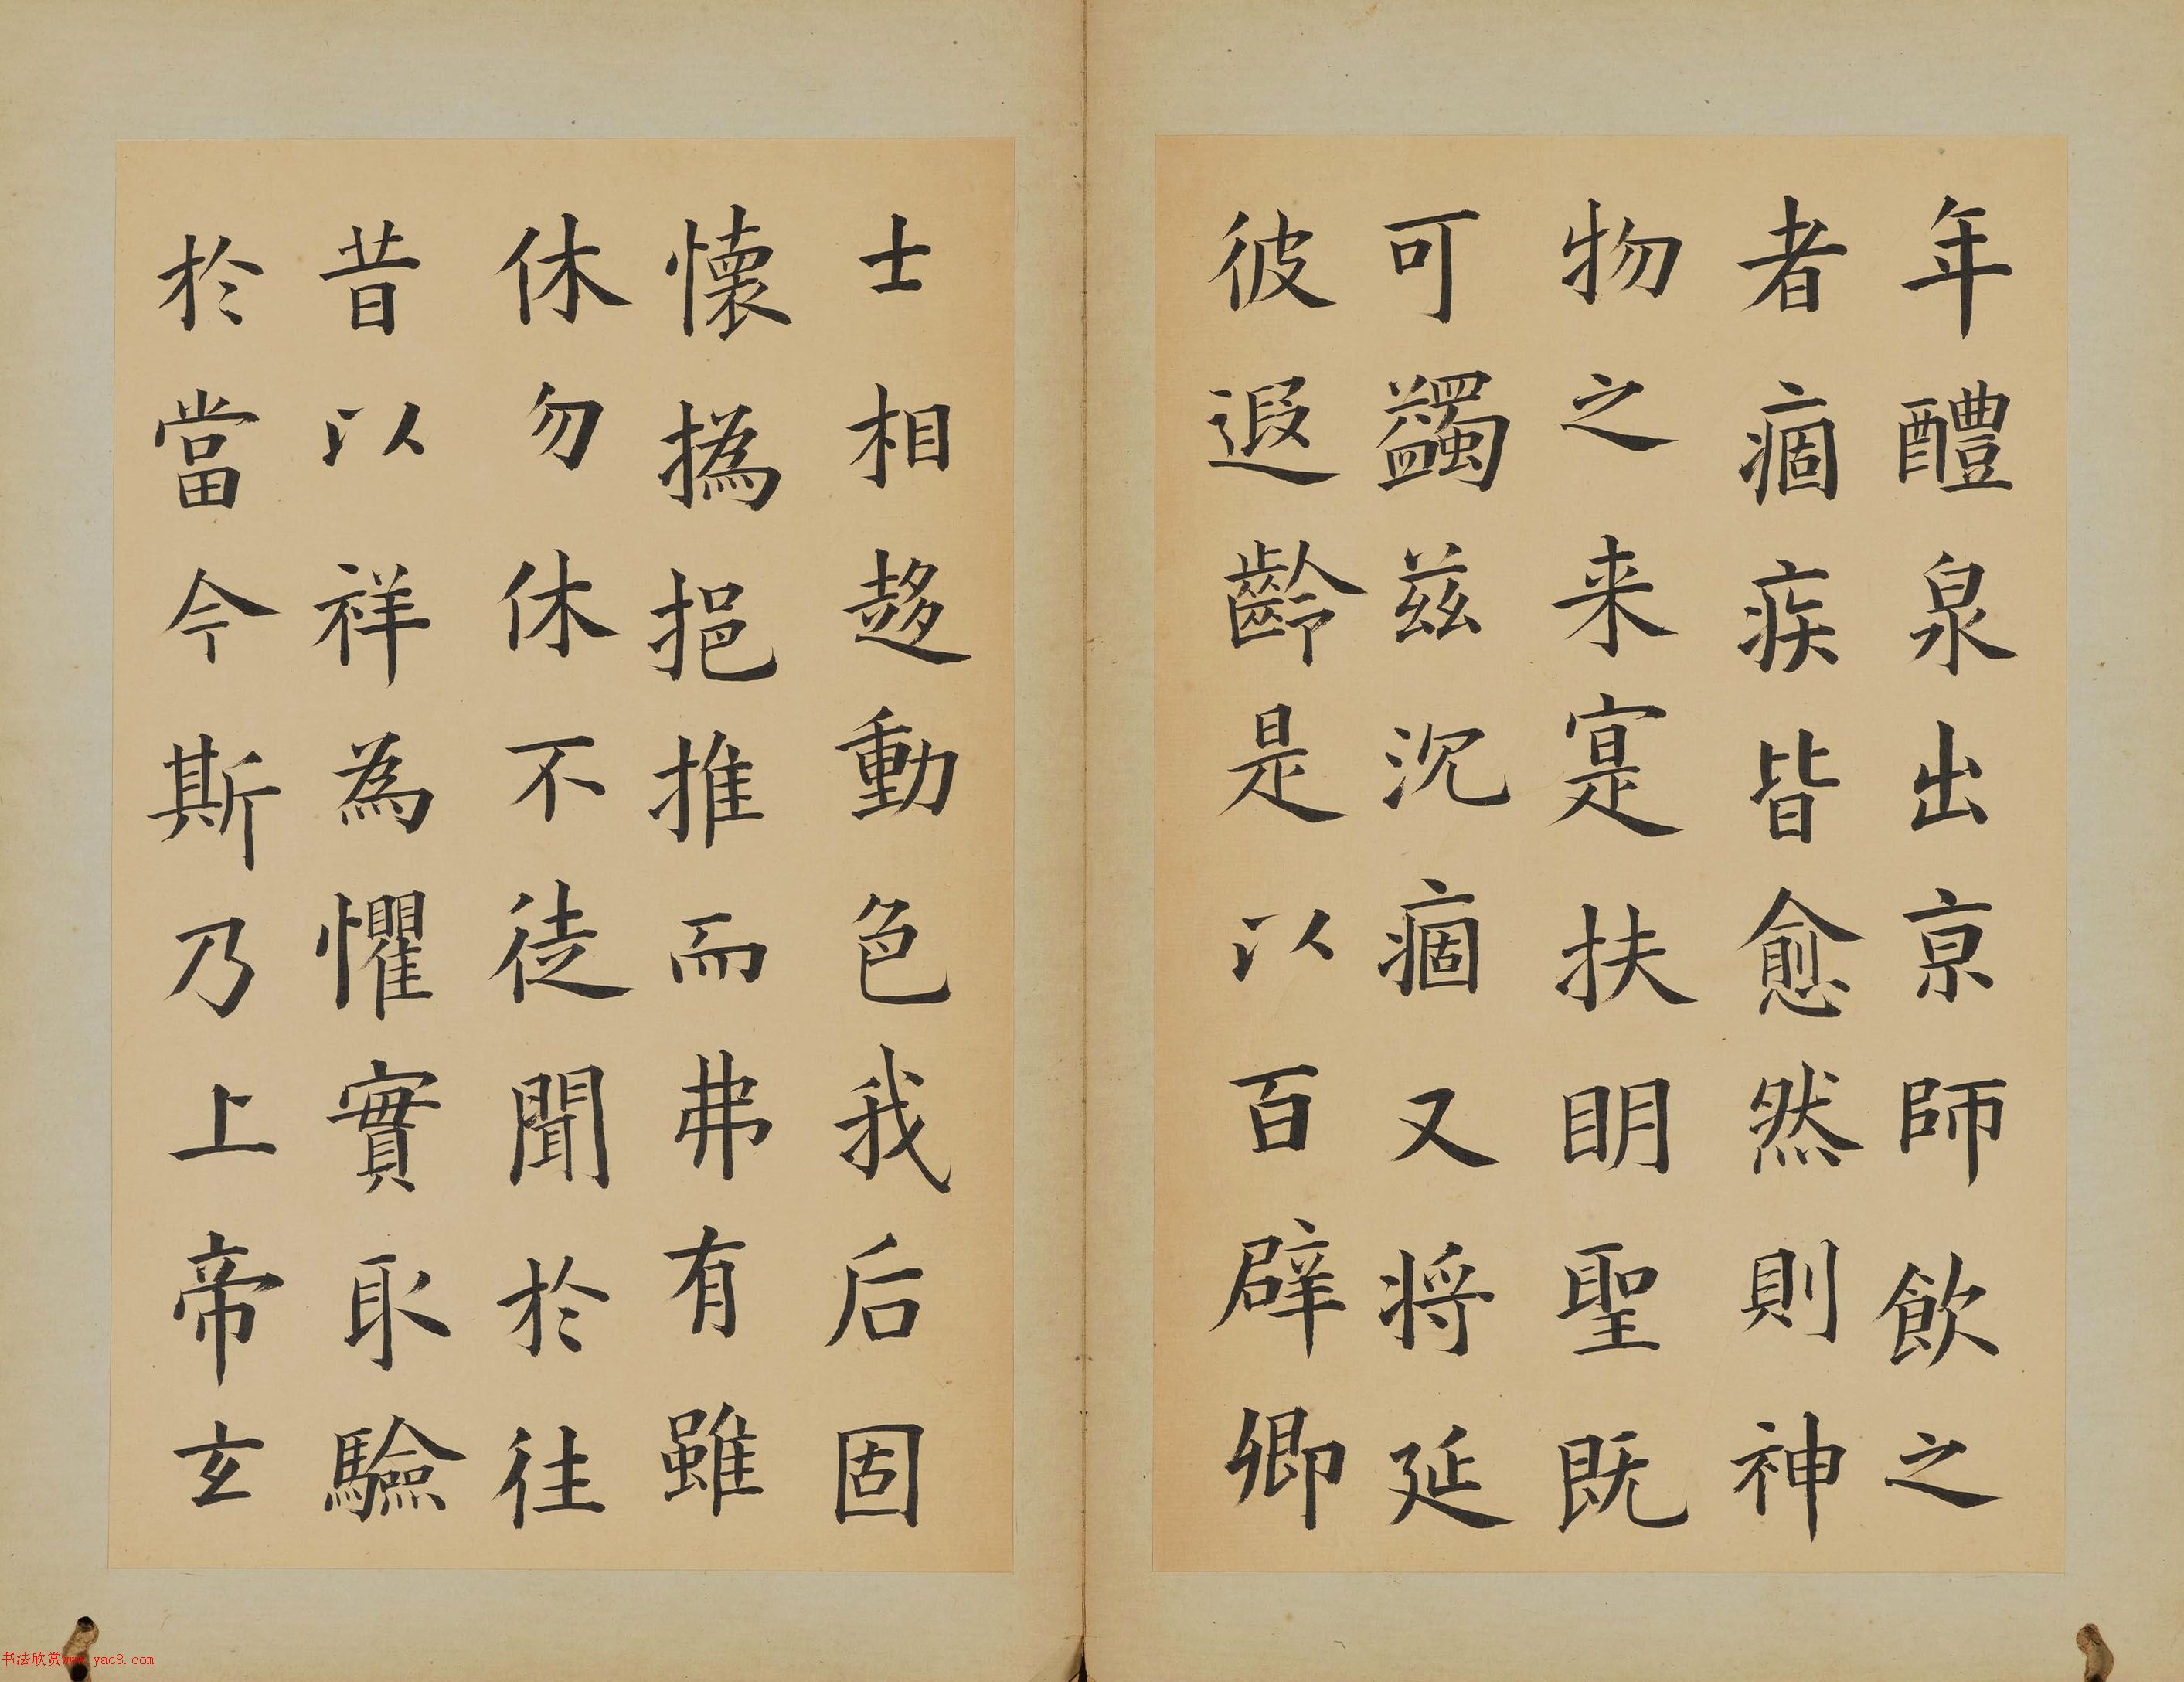 年醴泉出京師飲之
者痼疾皆愈然則神
物之来寔扶明聖既
可蠲兹沉痼又将延
彼遐齡是以百辟卿
士相趍動色我后固
懷撝挹推而弗有雖
休勿休不徒聞於往
昔以祥為懼實取驗
於當今斯乃上帝玄
书法欣赏www.yac8.com